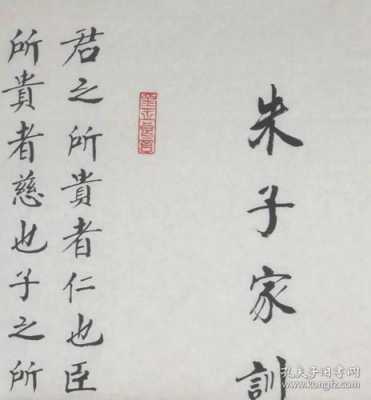 朱子家訓
君之所貴者仁也臣
所貴者慈也子之所
孔夫子旧书网
book.kongfz.com